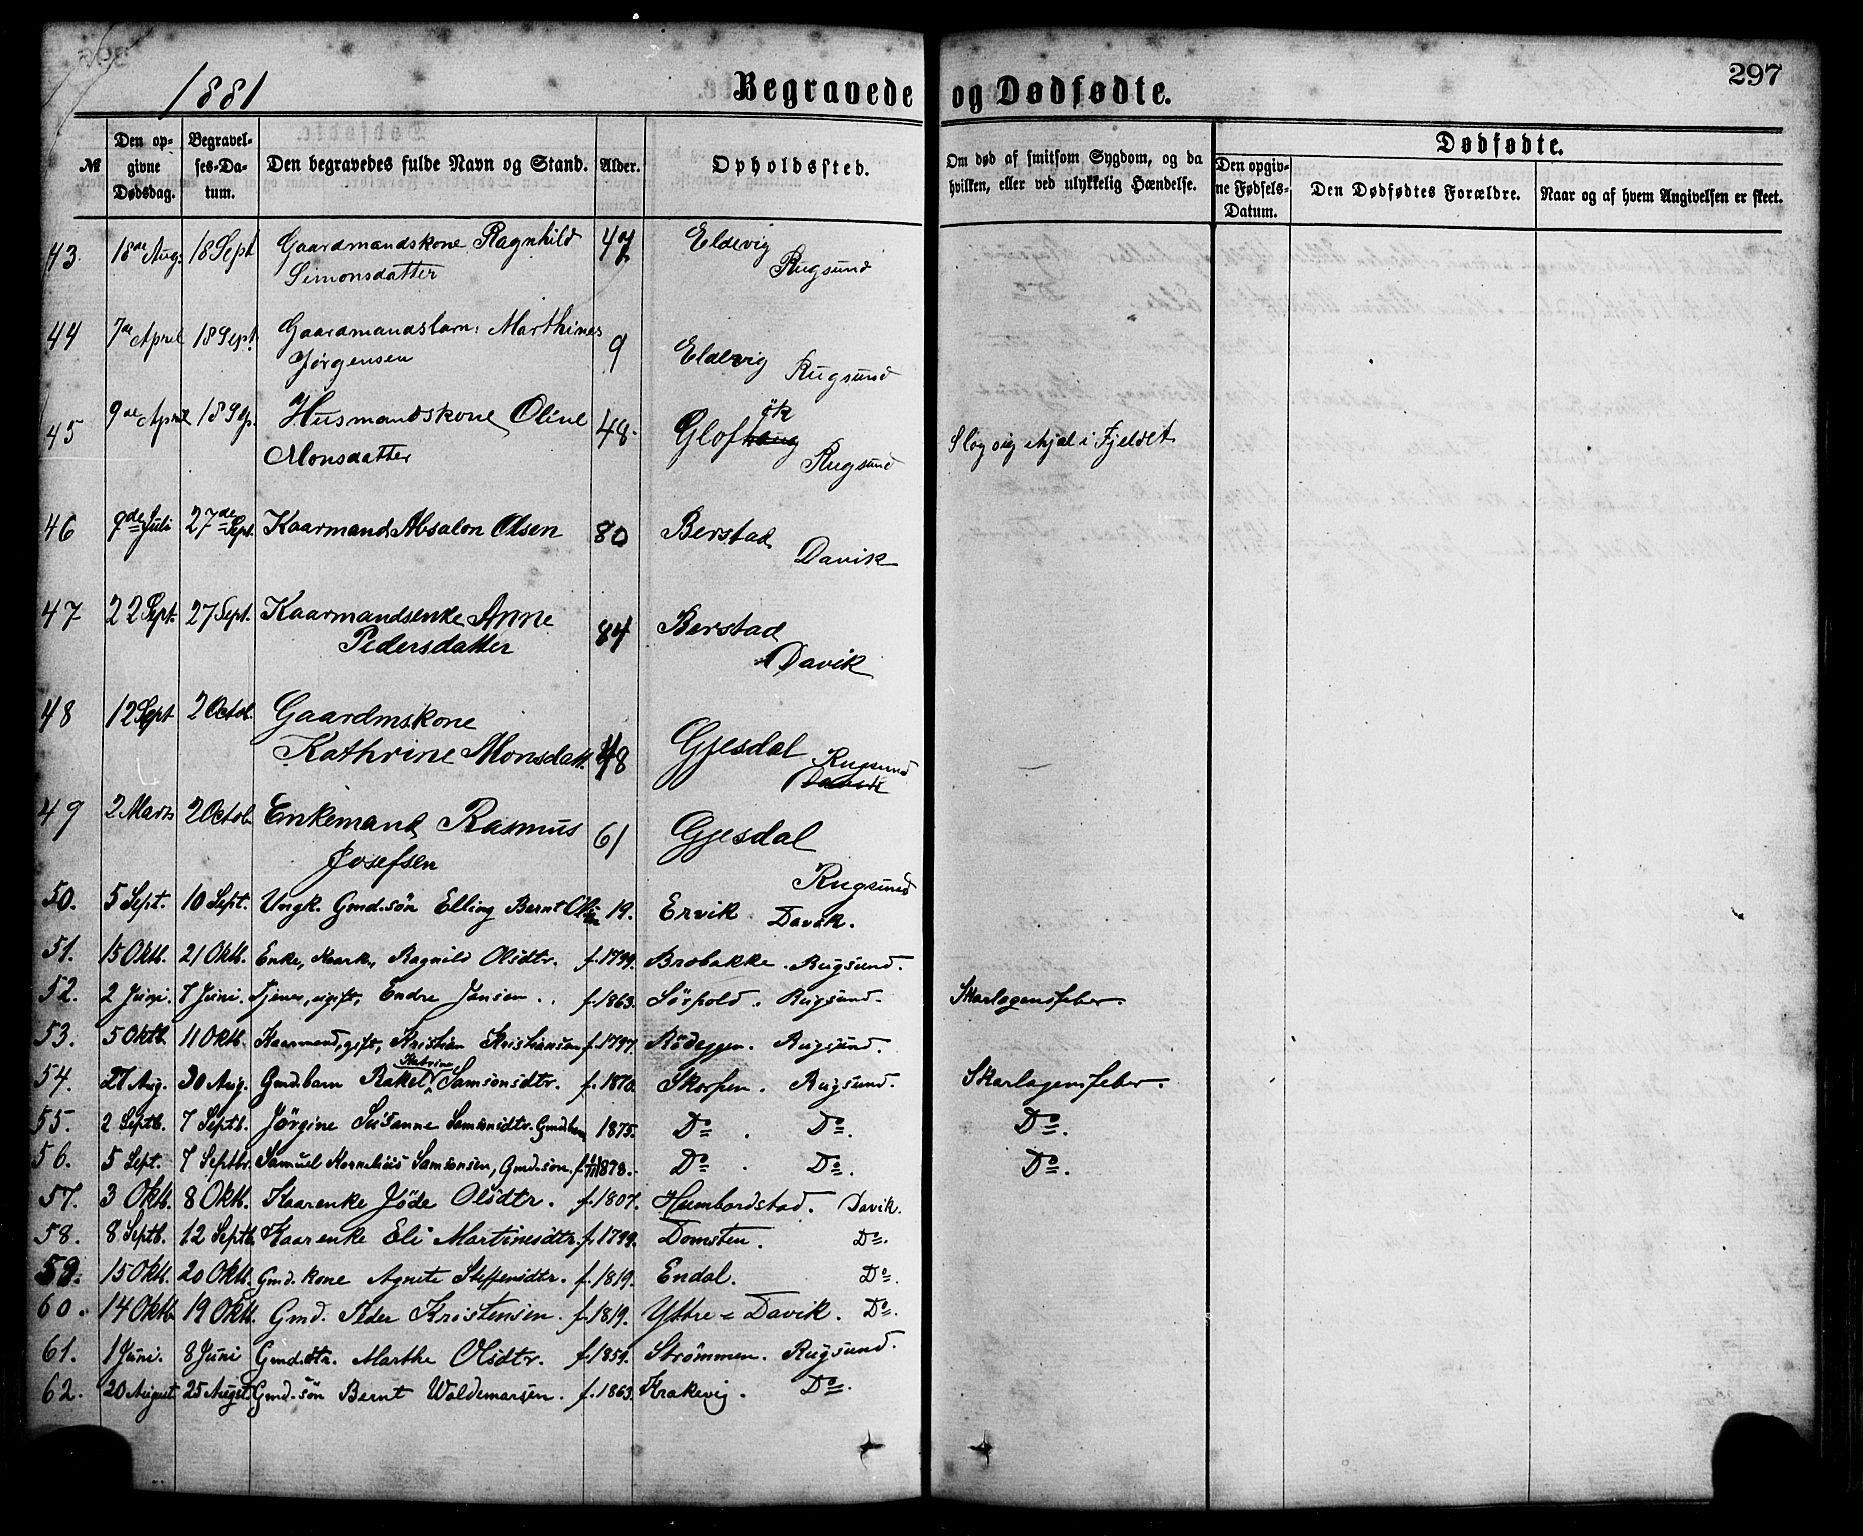 1881
Begravede og Dødfødte.
297
№
Den opgivne Dødsdag.
Begravelses-Datum.
Den begravedes fulde Navn og Stand.
Alder.
Opholdssted.
Om død af smitsom Sygdom, og da hvilken, eller ved ulykkelig Hændelse.
Dødfødte.
Den opgivne Fødsels-Datum.
Den Dødfødtes Forældre.
Naar og af hvem Angivelsen er skeet.
43. 18de Aug. 18 Sept Gaardmandskone Ragnhild Simonsdatter 47 Eldevig Rugsund
44 7de April 18 Sept. Gaardmandsbarn: Marthines Jørgensen 9 Eldevig Rugsund
45 9de April 18 Sp. Husmandskone Oline Monsdatter 48. Glofhaug øk Rugsund Slog sig ihjæl i Fjeldet
46 9de Juli 27de Sept. Kaarmand Absalon Olsen 80 Berstad Davik
47 22 Sept. 27 Sept. Kaarmandsenke Anne Pedersdatter 84 Berstad Davik
48 12 Sept 2 Octob. Gaardmskone Kathrine Monsdatt. 48 Gjesdal Rugsund Davik
49 2 Marts 2 Octob. Enkemand Rasmus Josefsen 61 Gjesdal Rugsund
50. 5 Sept. 10 Sept. Ungk. Gmd.søn Elling Bernt Olsen 19. Ervik Davik.
51. 15 Oktb. 21 Oktb. Enke, Kaark., Ragnild Olsdtr. f. 1799. Brobakke. Rugsund.
52. 2 Juni. 7 Juni. Tjener, ugift, Endre Jansen.. f. 1863. Sörpold. Rugsund. Skarlagensfeber.
53. 5 Oktb. 11 Oktb. Kaarmand, gift, Kristian Kristiansen f. 1797. Rödeggen. Rugsund.
54. 27 Aug. 30 Aug. Gmd.barn Rakel Katrine Samsonsdtr. f. 1870. Skorpen. Rugsund. Skarlagensfeber.
55. 2 Septb. 7 Septb. Jörgine Susanne Samsonsdtr. Gmd.barn 1875. Do. Do. Do.
56. 5 Sept. 7 Septbr. Samuel Kornelius Samsonsen, Gmd.søn. f. 1878. Do. Do. Do.
57. 3 Oktb. 8 Oktb. Kaarenke Jöde Olsdtr. f. 1807. Humbordstad. Davik.
58. 8 Septb. 12 Septb. Kaarenke Eli Martinesdtr. f. 1799. Domsten. Do.
59. 15 Oktb. 20 Oktb. Gmd.kone Agnete Steffensdtr. f. 1819. Endal. Do.
60. 14 Oktb 19 Oktb. Gmd. Peder Kristensen. f. 1819. Yttre-Davik. Do.
61. 1 Juni. 8 Juni Gmd.dtr. Marthe Olsdtr. f. 1859. Strömmen. Rugsund.
62. 20 August 25 August Gmd.søn Bernt Woldemarsen. f. 1863. Krakevig. Do.